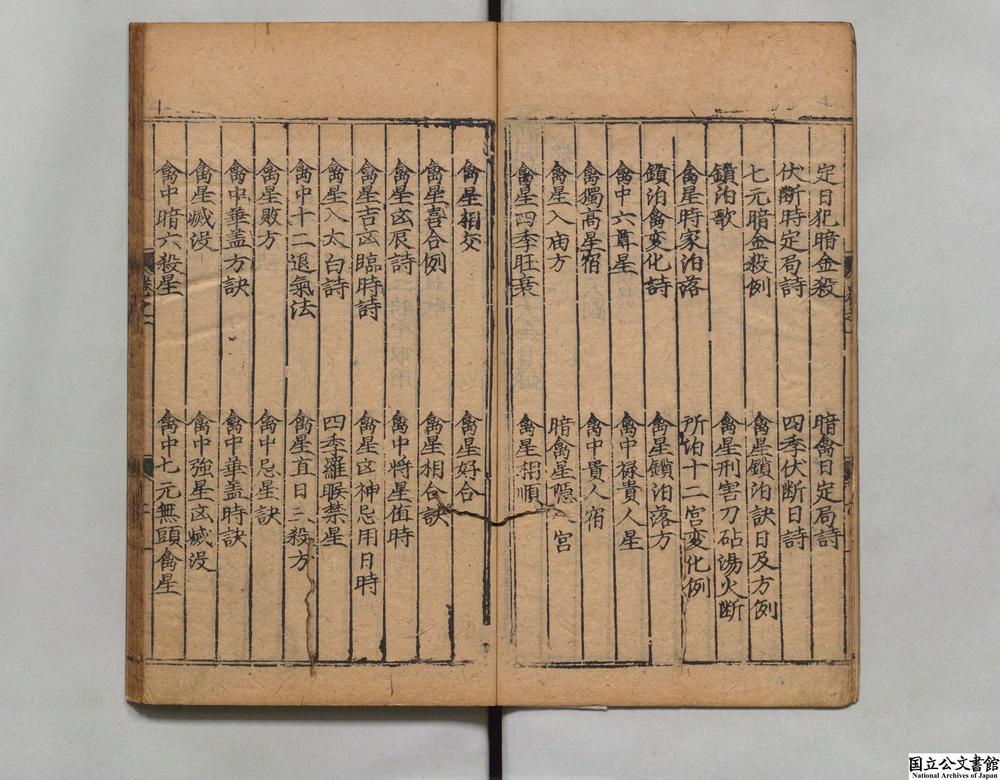 定日犯暗金殺　暗禽日定局詩
伏断時定局詩　四季伏断日詩
七元暗金殺例　禽星鎖泊訣日及方例
鎖泊歌　禽星刑害刀砧湯火断
禽星時家泊落　所泊十二宮変化例
鎖泊禽変化詩　禽星鎖泊落方
禽中六尊星　禽中禄貴人星
禽獨高星宿　禽中貴人宿
禽星入庙方　暗禽星隱宮
禽星四季旺衰　禽星相順
禽星相交　禽星好合
禽星喜合例　禽星相合訣
禽星凶辰詩　禽中将星值時
禽星吉凶臨時詩　禽星凶神忌用日時
禽星入太白詩　四季羅睺禁星
禽中十二退氣法　禽星直日三殺方
禽星敗方　禽中忌星訣
禽中華盖方訣　禽中華盖時訣
禽星滅没　禽中強星凶滅没
禽中暗六殺星　禽中七元無頭禽星
国立公文書館
National Archives of Japan